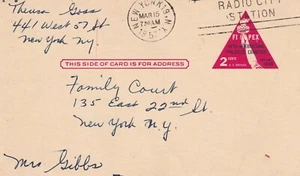 Theresa Goss
441 West 57 St
New York Ny.
NEW YORK 19, N.Y.
MAR 15
1957
RADIO CITY
STATION
THIS SIDE OF CARD IS FOR ADDRESS
FIPEX
2 CENTS
Family Court
135 East 22nd St.
New York N.Y.
Mrs Gibbs